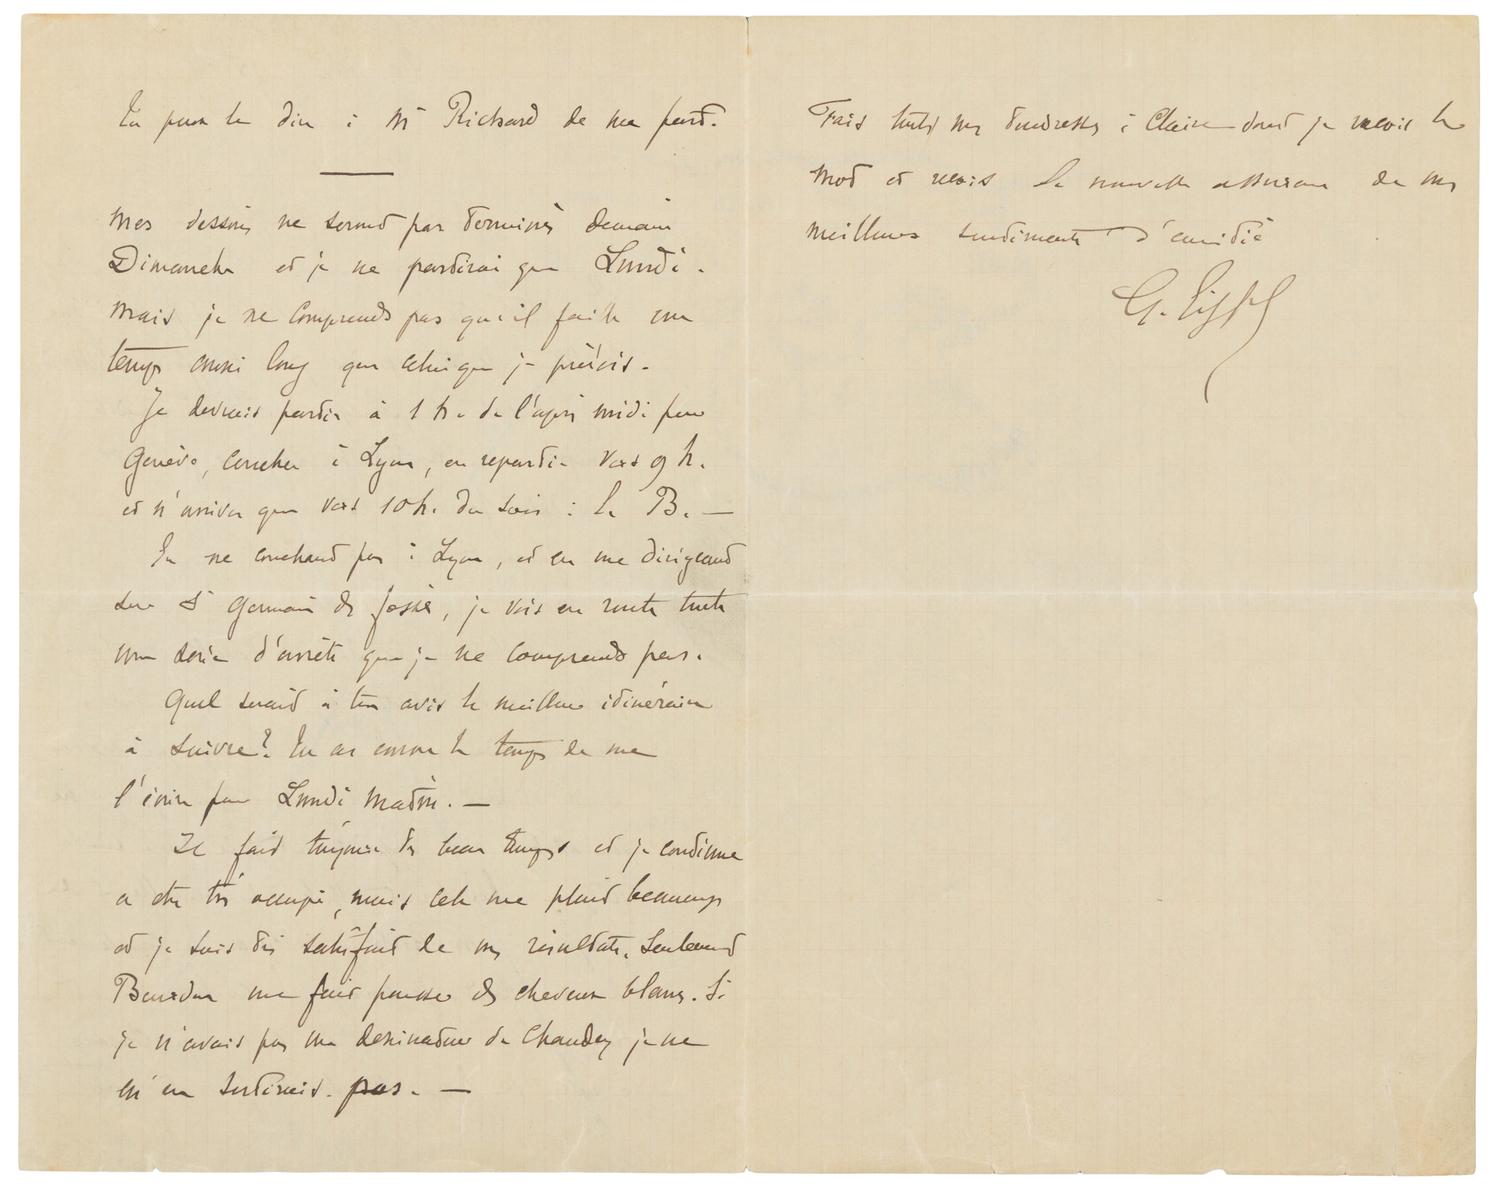 Tu peux le dire à Mr Richard de ma part.
Mes dessins ne seront pas terminés demain
Dimanche et je ne partirai que Lundi.
Mais je ne comprends pas qu'il faille un
temps aussi long que celui que je prévois.
Je devrais partir à 1 h. de l'après midi pour
Genève, coucher à Lyon, en repartir vers 9 h.
et n'arriver que vers 10 h. du soir à la B. —
En ne couchant pas à Lyon, et en me dirigeant
sur St Germain des Fossés, je vois en route toute
une série d'arrêts que je ne comprends pas.
Quel serait à ton avis le meilleur itinéraire
à suivre? Tu as encore le temps de me
l'écrire pour Lundi matin. —
Il fait toujours très beau temps et je continue
a être très occupé, mais cela me plait beaucoup
et je suis très satisfait de mes résultats. Seulement
me fait pousser des cheveux blancs. Si
je n'avais pas un dessinateur de je ne
m'en sortirais pas. —
Fais toutes mes tendresses à Claire dont je reçois le
mot et reçois la nouvelle assurance de mes
meilleurs sentiments d'amitié
G. Eiffel